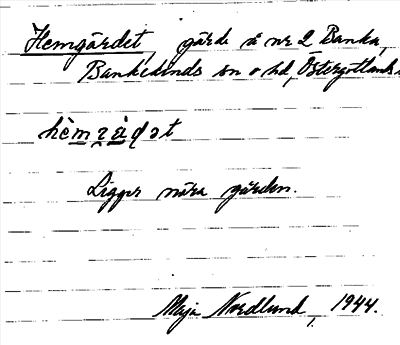 Hemgärdet, gärde å nr 2 Banka,
Bankekinds sn o hd, Östergötlands
Ligger nära gården.
Maja Nordlund, 1944.